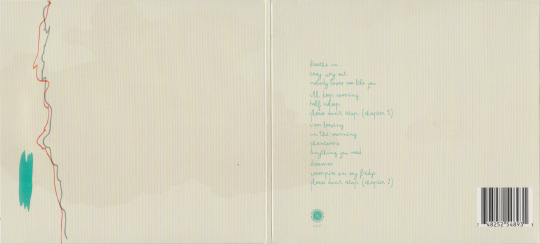 breathe in
easy way out
nobody loves me like you
i'll keep coming
half asleep
please don't stop (chapter 1)
i'm leaving
in the morning
phantoms
anything you need
vampire on my fridge
please don't stop (chapter 2)
48252 54893